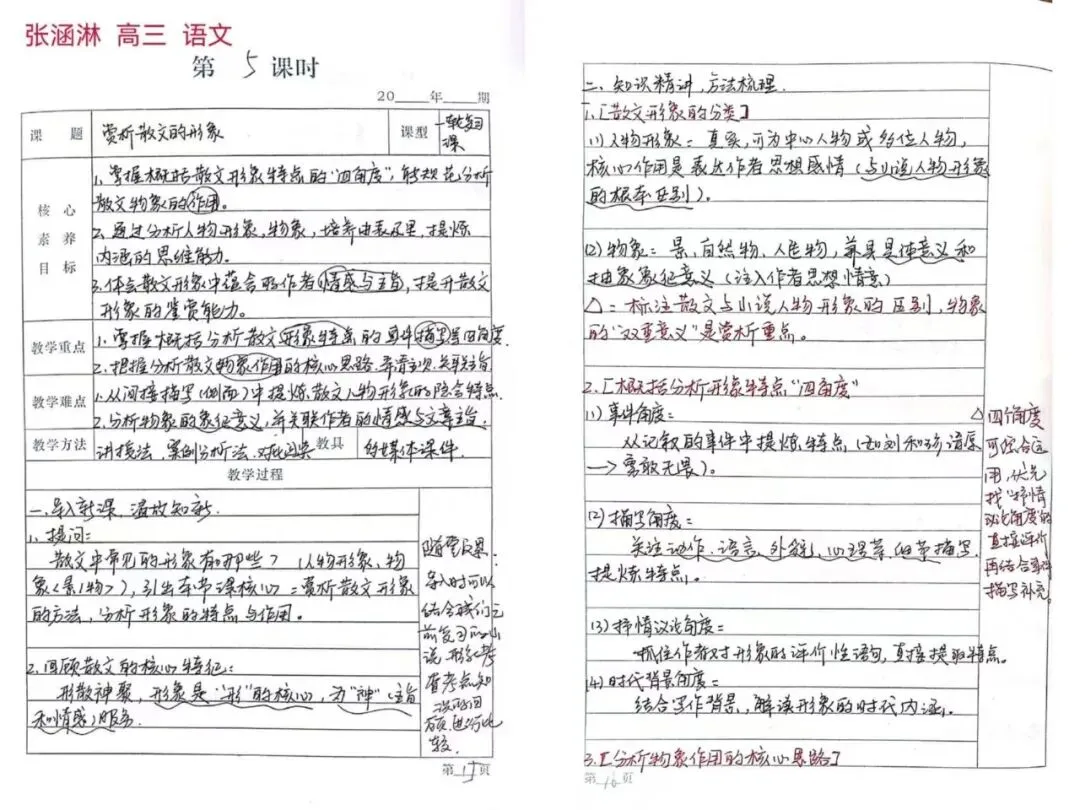 张涵淋 高三 语文
第 5 课时
20 年 期
课 题 赏析散文的形象 课型 一轮复习课
核心素养目标
1、掌握概括散文形象特点的“四角度”,能规范分析
散文物象的作用。
2、通过分析人物形象,物象,培养由表及里,提炼
内涵的思维能力。
3、体会散文形象中蕴含的作者情感与主旨,提升散文
形象的鉴赏能力。
教学重点
1、掌握概括分析散文形象特点的 描写等四角度
2、把握分析散文物象作用的核心思路
教学难点
1、从间接描写(侧面)中提炼散文人物形象的隐含特点
2、分析物象的象征意义,并关联作者的情感与文章主旨。
教学方法 讲授法,案例分析法 教具 多媒体课件
教学过程
一、导入新课,温故知新
1、提问:
散文中常见的形象有哪些?(人物形象、物
象<景物>),引出本节课核心:赏析散文形象
的方法,分析形象的特点与作用。
2、回顾散文的核心特征:
形散神聚,形象是“形”的核心,为“神”(主旨
和情感)服务
导入时可以
结合我们之
前复习的小
说 形象
有考点知
进行比
较.
第 15 页
二、知识精讲,方法梳理
1.[散文形象的分类]
(1)人物形象:真实,可为中心人物或多位人物,
核心作用是表达作者思想感情(与小说人物形象
的根本区别)。
(2)物象:景、自然物、人造物,兼具具体意义和
抽象象征意义(注入作者思想情意)
△:标注散文与小说人物形象的区别,物象
的“双重意义”是赏析重点。
2.[概括分析形象特点“四角度”
(1)事件角度:
从记叙的事件中提炼特点(如刘和珍请愿
→勇敢无畏)。
(2)描写角度:
关注动作、语言、外貌、心理等细节描写
提炼特点。
(3)抒情议论角度:
抓住作者对形象的评价性语句,直接提取特点。
(4)时代背景角度:
结合写作背景,解读形象的时代内涵。
3.[分析物象作用的核心思路]
△四个角度
可综合运
用,优先
找“抒情
议论角度”的
直接评价
再结合事件
描写补充。
第 16 页